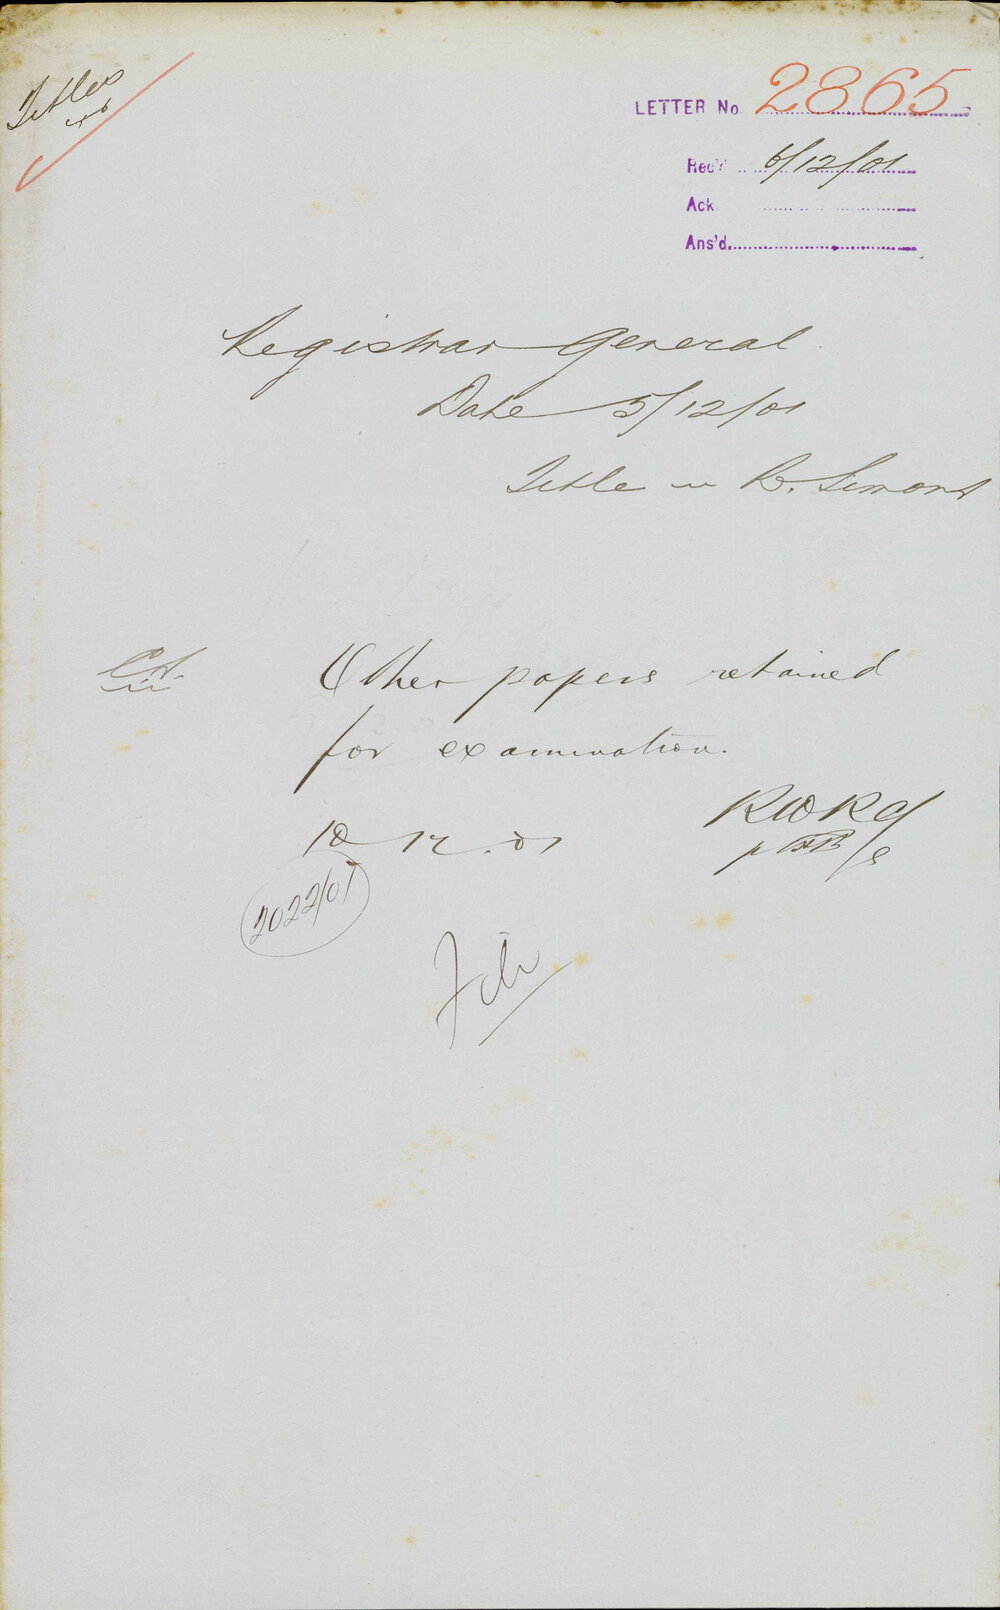 Titles
LETTER No. 2865
Rec'd 6/12/01
Ack.
Ans'd.
Registrar General
Date 5/12/01
Title in D. Simons
Other papers retained
for examination.
10.12.01
2022/01
File